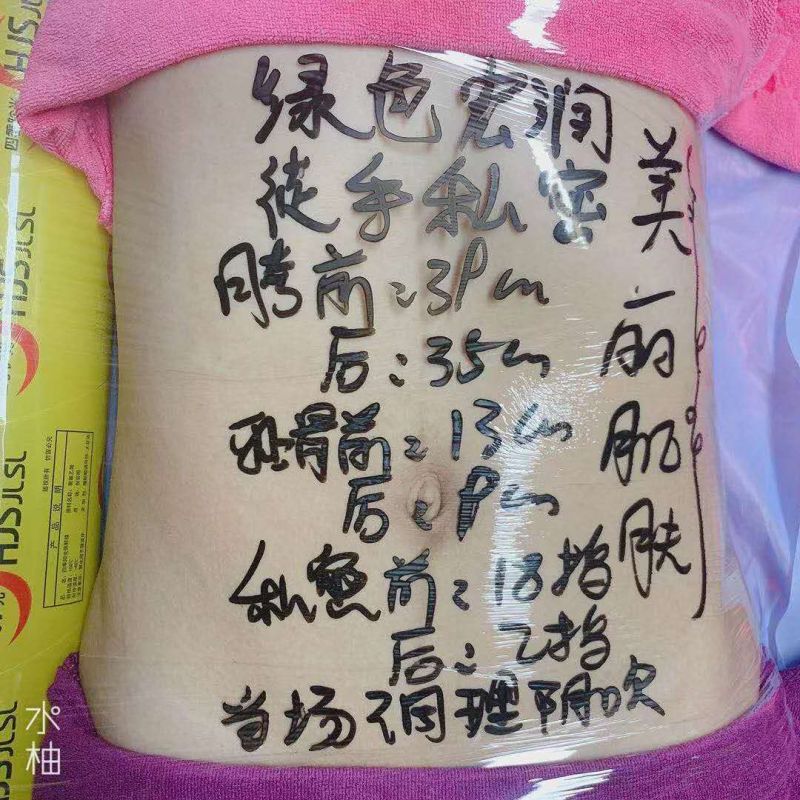 绿色宏润
徒手私密
胯前:39cm
后:35cm
耻骨前:13cm
后:9cm
私密前:18指
后:2指
当场调理阴吹
美丽肌肤
HJSJLSL
HJSJLSL
产品说明
水柚